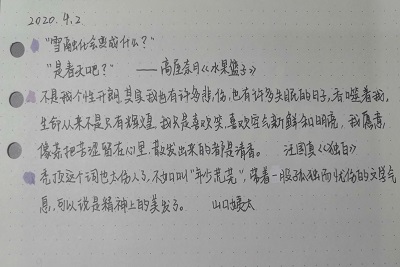 2020.4.2
"雪融化会变成什么？"
"是春天吧？" ——高屋奈月《水果篮子》
不是我个性开朗,其实我也有许多悲伤,也有许多失眠的日子,吞噬着我,
生命从来不是只有辉煌,我只是喜欢笑,喜欢空气新鲜和明亮,我愿意
像茶把苦涩留在心里,散发出来的都是清香。 汪国真《独白》
秃顶这个词也太伤人了,不如叫"年少荒芜",带着一股子孤独而忧伤的文学气
息,可以说是精神上的美发了。 山口嬢太